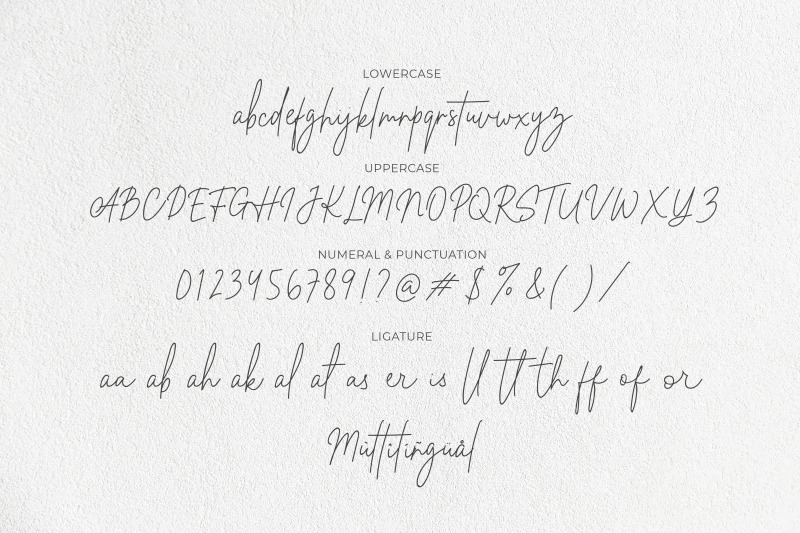 LOWERCASE
abcdefghijklmnpqrstuvwxyz
UPPERCASE
ABCDEFGHIJKLMNOPQRSTUVWXYZ
NUMERAL & PUNCTUATION
0123456789!?@#$%&()/
LIGATURE
aa ab ah ak al at as er is ll tt th ff of or
Mùttitiñguål